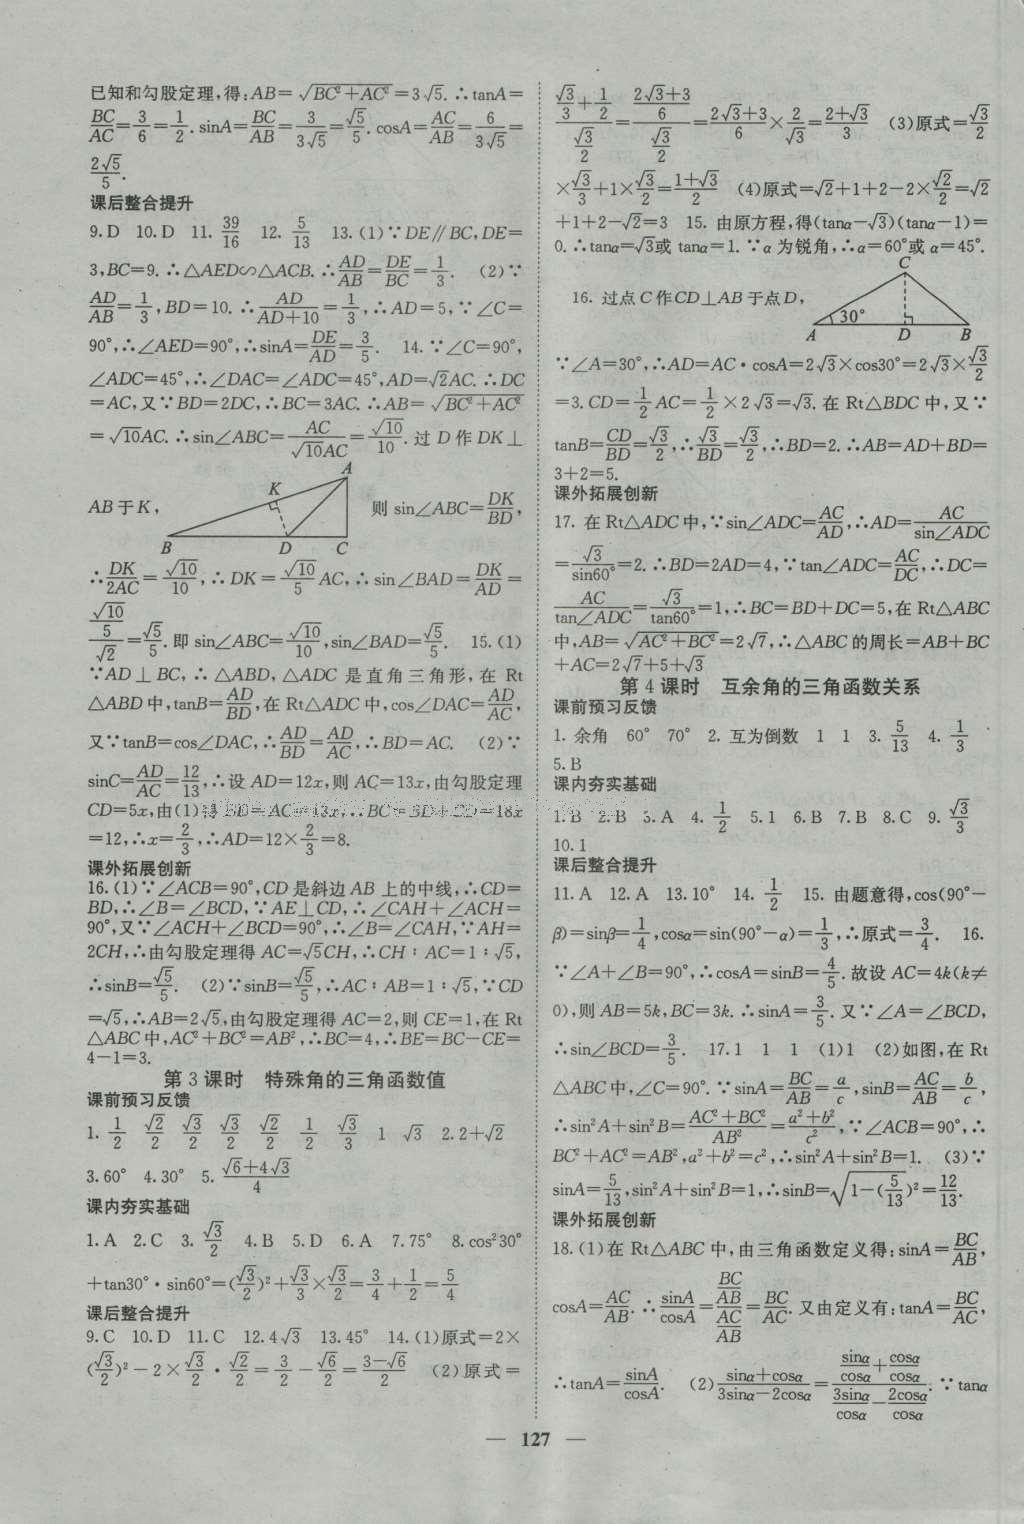 已知和勾股定理,得:AB=√(BC²+AC²)=3√5.∴tanA=
BC/AC=3/6=1/2.sinA=BC/AB=3/(3√5)=√5/5.cosA=AC/AB=6/(3√5)=
2√5/5.
课后整合提升
9.D 10.D 11. 39/16 12. 5/13 13.(1)∵DE∥BC,DE=
3,BC=9.∴△AED∽△ACB.∴AD/AB=DE/BC=1/3. (2)∵
AD/AB=1/3,BD=10.∴AD/(AD+10)=1/3,∴AD=5,∵∠C=
90°,∴∠AED=90°,∴sinA=DE/AD=3/5. 14.∵∠C=90°,
∠ADC=45°,∴∠DAC=∠ADC=45°,AD=√2AC.∴DC
=AC,又∵BD=2DC,∴BC=3AC.∴AB=√(BC²+AC²)
=√10AC.∴sin∠ABC=AC/(√10AC)=√10/10.过D作DK⊥
AB于K, A K B D C 则sin∠ABC=DK/BD,
∴DK/2AC=√10/10,∴DK=√10/5 AC,∴sin∠BAD=DK/AD=
(√10/5)/√2=√5/5.即sin∠ABC=√10/10,sin∠BAD=√5/5. 15.(1)
∵AD⊥BC,∴△ABD,△ADC是直角三角形,在Rt
△ABD中,tanB=AD/BD,在Rt△ADC中,cos∠DAC=AD/AC,
又∵tanB=cos∠DAC,∴AD/BD=AD/AC,∴BD=AC. (2)∵
sinC=AD/AC=12/13,∴设AD=12x,则AC=13x,由勾股定理
CD=5x,由(1)得BD=AC=13x,∴BC=BD+CD=18x
=12,∴x=2/3,∴AD=12×2/3=8.
课外拓展创新
16.(1)∵∠ACB=90°,CD是斜边AB上的中线,∴CD=
BD,∴∠B=∠BCD,∵AE⊥CD,∴∠CAH+∠ACH=
90°,又∵∠ACH+∠BCD=90°,∴∠B=∠CAH,∵AH=
2CH,∴由勾股定理得AC=√5CH,∴CH∶AC=1∶√5,
∴sinB=√5/5. (2)∵sinB=√5/5,∴AC∶AB=1∶√5,∵CD
=√5,∴AB=2√5,由勾股定理得AC=2,则CE=1,在Rt
△ABC中,AC²+BC²=AB²,∴BC=4,∴BE=BC-CE=
4-1=3.
第3课时 特殊角的三角函数值
课前预习反馈
1. 1/2 √2/2 √3/2 √3/2 √2/2 1/2 √3/3 1 √3 2.2+√2
3.60° 4.30° 5. (√6+4√3)/4
课内夯实基础
1.A 2.C 3. √3/2 4.B 5.D 6.A 7.75° 8.cos²30°
+tan30°·sin60°=(√3/2)²+√3/3×√3/2=3/4+1/2=5/4
课后整合提升
9.C 10.D 11.C 12.4√3 13.45° 14.(1)原式=2×
(√3/2)²-2×√3/2·√2/2=3/2-√6/2=(3-√6)/2 (2)原式=
(√3/3+1/2)/(√3/2)=((2√3+3)/6)/(√3/2)=(2√3+3)/6×2/√3=(2+√3)/3 (3)原式=√3/2
×√3/3+1×√3/2=(1+√3)/2 (4)原式=√2+1+2-2×√2/2=√2
+1+2-√2=3 15.由原方程,得(tanα-√3)(tanα-1)=
0.∴tanα=√3或tanα=1.∵α为锐角,∴α=60°或α=45°.
16.过点C作CD⊥AB于点D, C 30° A D B
∵∠A=30°,∴AD=AC·cosA=2√3×cos30°=2√3×√3/2
=3.CD=1/2AC=1/2×2√3=√3.在Rt△BDC中,又∵
tanB=CD/BD=√3/2,∴√3/BD=√3/2,∴BD=2.∴AB=AD+BD=
3+2=5.
课外拓展创新
17.在Rt△ADC中,∵sin∠ADC=AC/AD,∴AD=AC/sin∠ADC
=√3/sin60°=2.∴BD=2AD=4,∵tan∠ADC=AC/DC,∴DC=
AC/tan∠ADC=√3/tan60°=1,∴BC=BD+DC=5,在Rt△ABC
中,AB=√(AC²+BC²)=2√7,∴△ABC的周长=AB+BC
+AC=2√7+5+√3
第4课时 互余角的三角函数关系
课前预习反馈
1.余角 60° 70° 2.互为倒数 1 1 3. 5/13 4. 1/3
5.B
课内夯实基础
1.B 2.B 3.A 4. 1/2 5.1 6.B 7.B 8.C 9. √3/3
10.1
课后整合提升
11.A 12.A 13.10° 14. 1/2 15.由题意得,cos(90°-
β)=sinβ=1/4,cosα=sin(90°-α)=1/3,∴原式=3/4. 16.
∵∠A+∠B=90°,∴cosA=sinB=4/5.故设AC=4k(k≠
0),则AB=5k,BC=3k.∴sinA=3/5.又∵∠A=∠BCD,
∴sin∠BCD=3/5. 17.1 1 1 (1)1 (2)如图,在Rt
△ABC中,∠C=90°.∵sinA=BC/AB=a/c,sinB=AC/AB=b/c,
∴sin²A+sin²B=(AC²+BC²)/AB²=(a²+b²)/c²,∵∠ACB=90°,∴
BC²+AC²=AB²,a²+b²=c²,∴sin²A+sin²B=1. (3)∵
sinA=5/13,sin²A+sin²B=1,∴sinB=√(1-(5/13)²)=12/13.
课外拓展创新
18.(1)在Rt△ABC中,由三角函数定义得:sinA=BC/AB,
cosA=AC/AB.∴sinA/cosA=(BC/AB)/(AC/AB)=BC/AC.又由定义有:tanA=BC/AC,
∴tanA=sinA/cosA. (2)(sinα+cosα)/(3sinα-2cosα)=(sinα/cosα+cosα/cosα)/(3sinα/cosα-2cosα/cosα).∵tanα
— 127 —